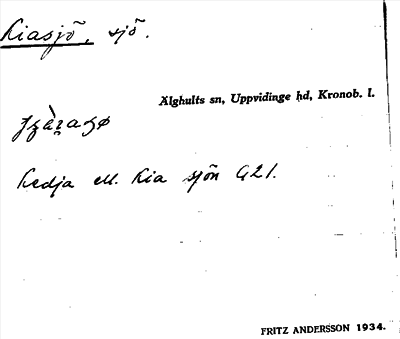 Kiasjö, sjö.
Älghults sn, Uppvidinge hd, Kronob. l.
Kedja ell. Kia sjön G21.
FRITZ ANDERSSON 1934.